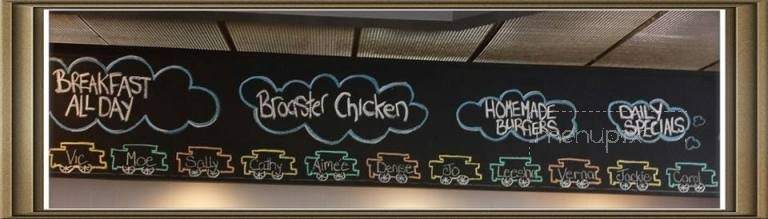 BREAKFAST
ALL DAY
Broaster Chicken
HOMEMADE
BURGERS
DAILY
SPECIALS
menupix
Vic Moe Sally Cathy Aimee Denise Jo Leesha Verna Jackie Carol